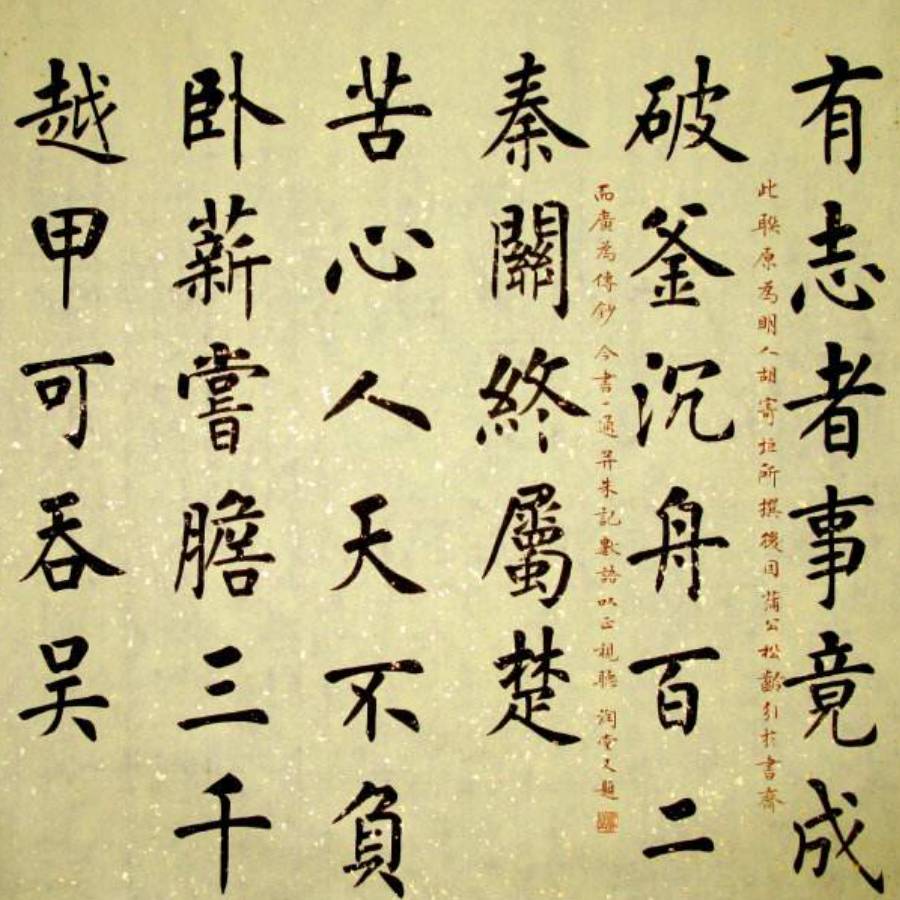 有志者事竟成
此聯原為明人胡寄垣所撰後因蒲公松齡引於書齋
破釜沉舟百二
而廣為傳鈔今書一通并朱記數語以正視聽潤堂又題
秦關終屬楚
苦心人天不負
卧薪嘗膽三千
越甲可吞吴